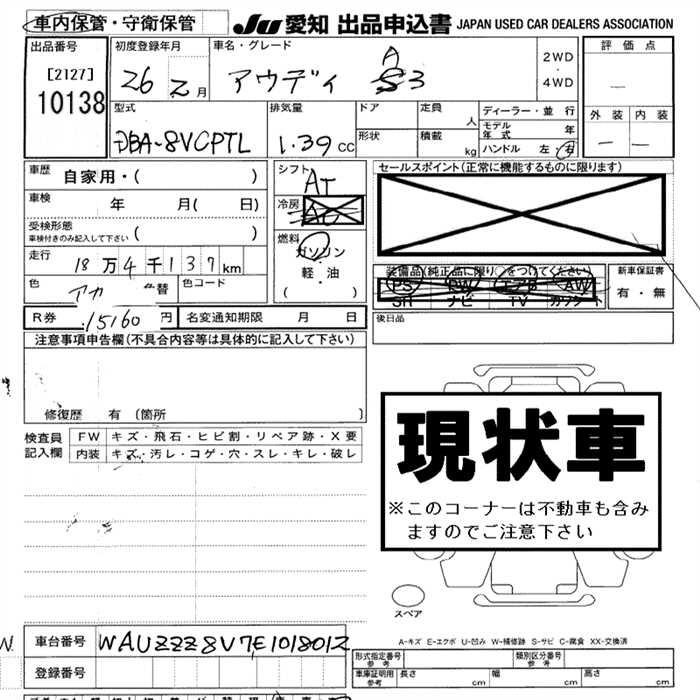 車内保管・守衛保管 JU 愛知 出品申込書 JAPAN USED CAR DEALERS ASSOCIATION
出品番号 初度登録年月 車名・グレード 評価点
[2127] 26 2月 アウディ A S3 2WD・4WD
10138
型式 排気量 ドア 定員 人 ディーラー・並行 外装 内装
モデル年式 年
DBA-8VCPTL 1.39 CC 形状 積載 kg ハンドル 左・右
車歴 自家用・( ) シフト AT セールスポイント(正常に機能するものに限ります)
車検 年 月( 日) 冷房 AC
受検形態 車検付きのみ記入して下さい ( ) 燃料 ガソリン
走行 18万4千137km 軽・油
( )
装備品(純正品に限り○をつけてください) 新車保証書
色 アカ 色替 色コード PS PW エアB AW 有・無
SR ナビ TV カワシート
R券 15160円 名変通知期限 月 日 後日品
注意事項申告欄(不具合内容等は具体的に記入して下さい)
修復歴 有 〔箇所 〕
検査員記入欄 FW キズ・飛石・ヒビ割・リペア跡・X要
内装 キズ・汚レ・コゲ・穴・スレ・キレ・破レ
現状車
※このコーナーは不動車も含み
ますのでご注意下さい
スペア
A-キズ E-エクボ U-凹み W-補修跡 S-サビ C-腐食 XX-交換済
車台番号 WAUZZZ8V7E1018012
登録番号
形式指定番号 参考 類別区分番号 参考
車庫証明用 参考 長さ cm 幅 cm 高さ cm